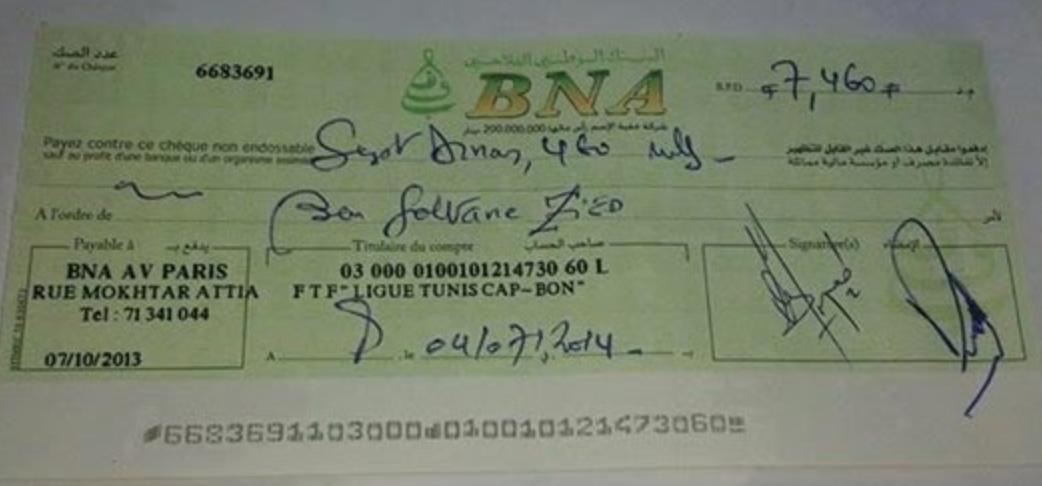 عدد الصك
N° du Chèque
6683691
البنك الوطني الفلاحي
BNA
شركة خفية الإسم رأس مالها 200.000.000 دينار
B.P.D. #7,460#
Payez contre ce chèque non endossable
sauf au profit d'une banque ou d'un organisme assimilé
Sept Dinars, 460 mills
إدفعوا مقابل هذا الصك غير القابل للتظهير
إلا لفائدة مصرف أو مؤسسة مالية مماثلة
A l'ordre de Ben Soltane Zied لأمر
Payable à يدفع بـ
BNA AV PARIS
RUE MOKHTAR ATTIA
Tel : 71 341 044
07/10/2013
Titulaire du compte صاحب الحساب
03 000 0100101214730 60 L
FTF" LIGUE TUNIS CAP-BON"
A le 04/07/2014
Signature(s) الإمضاء
6683691103000 010010121473060